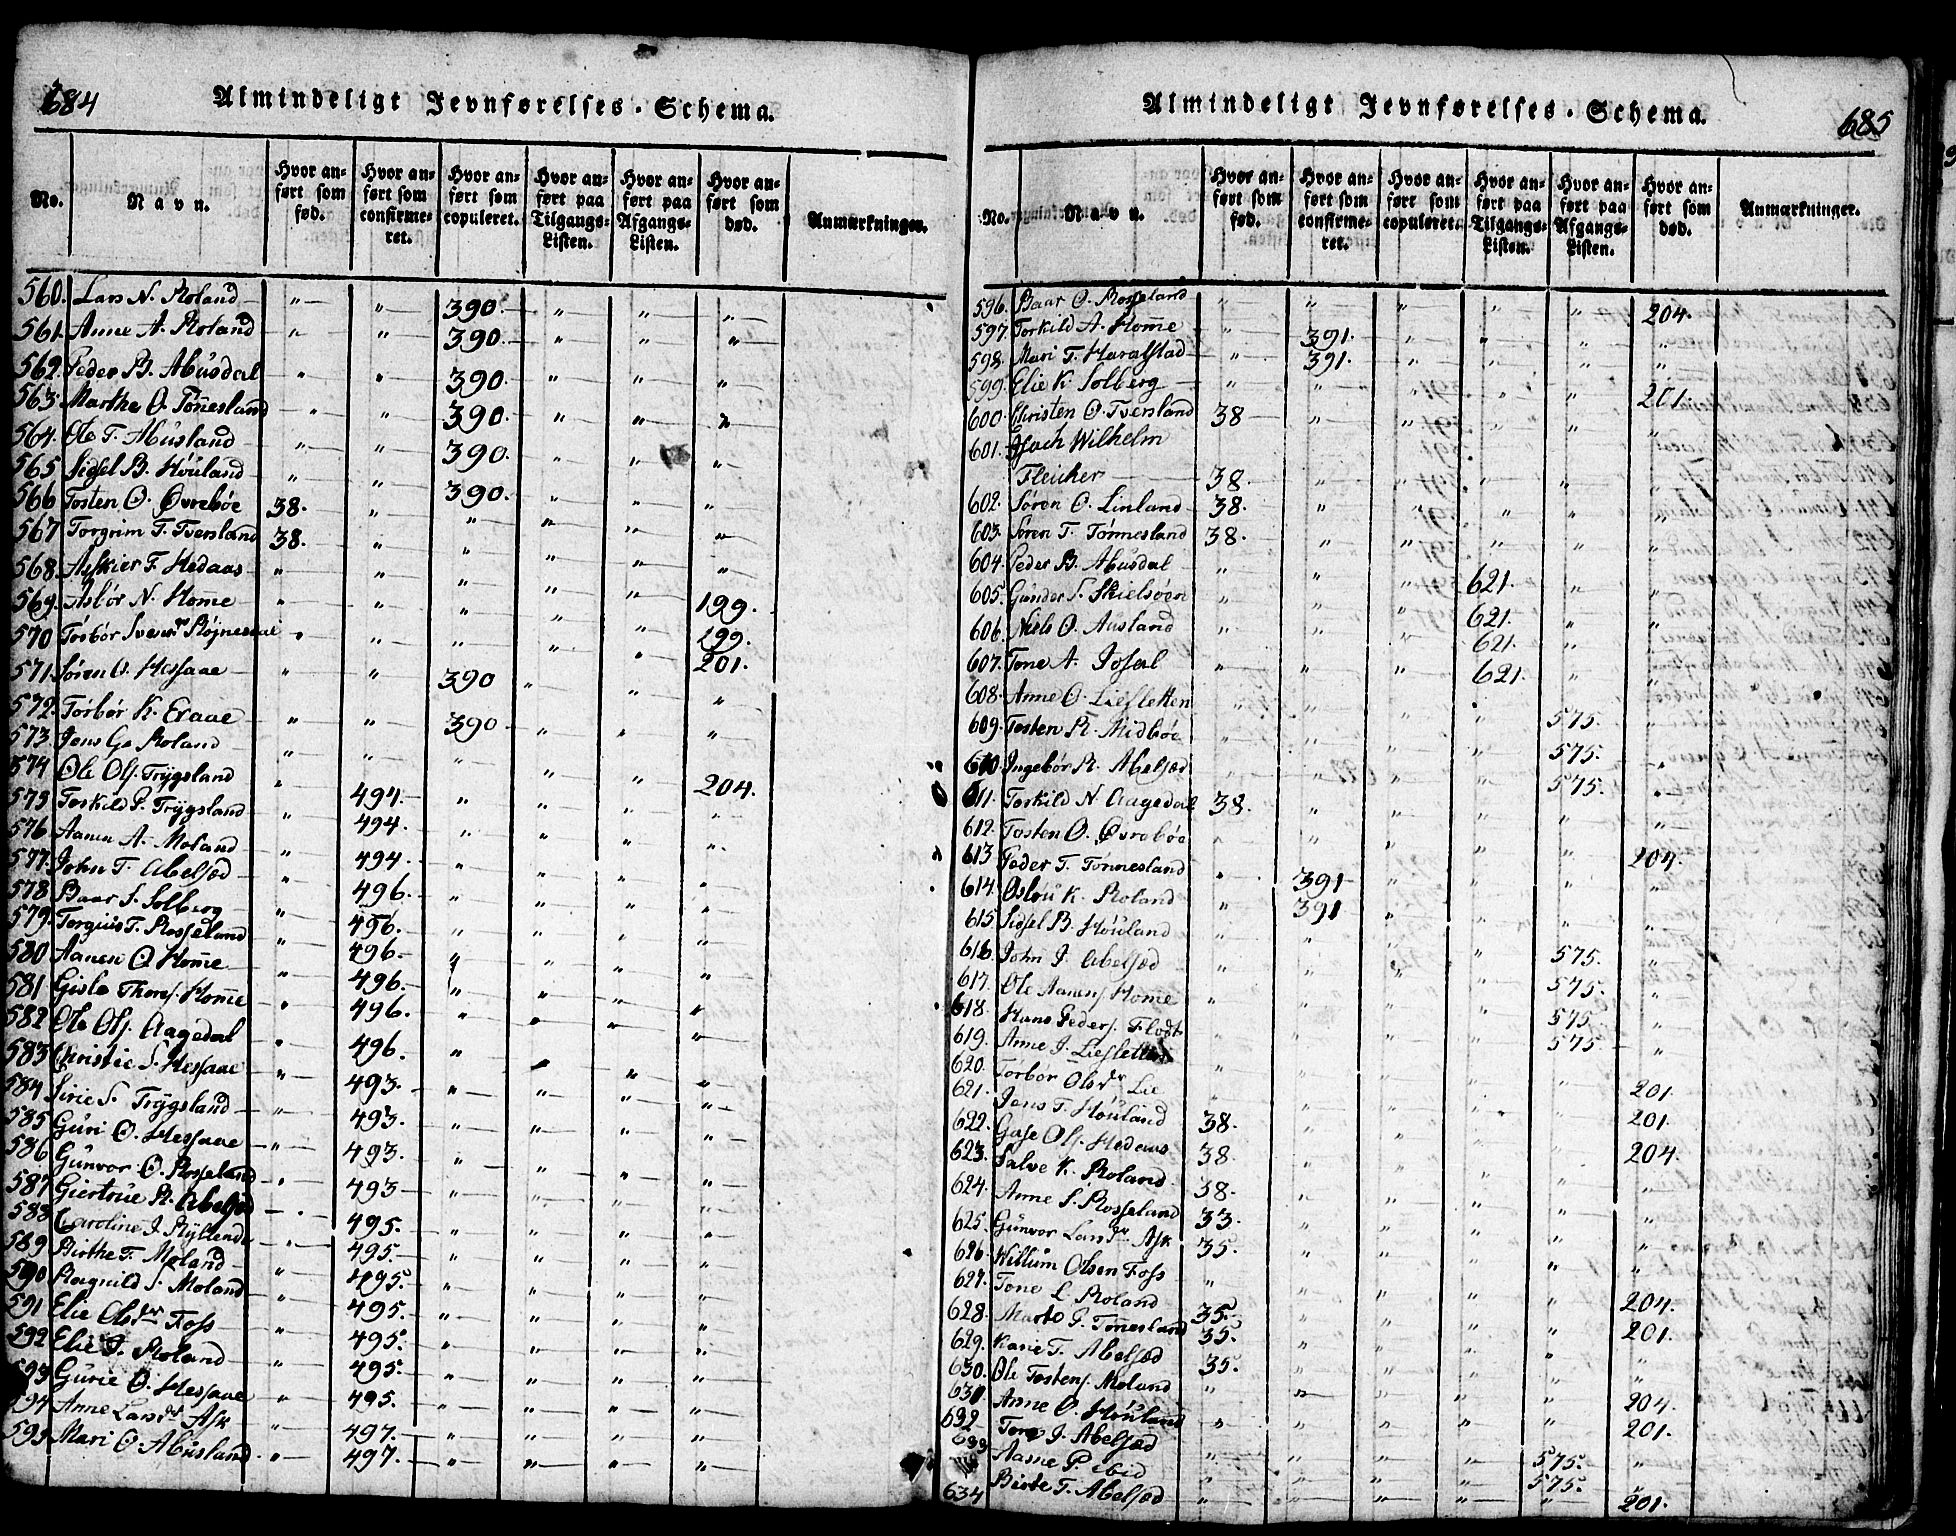 684
Almindeligt Jevnførelses-Schema.
No. Navn. Hvor anført som fød. Hvor anført som confirmeret. Hvor anført som copuleret. Hvor anført paa Tilgangs-Listen. Hvor anført paa Afgangs-Listen. Hvor anført som død. Anmærkninger.
560. Lars N. Roland 390.
561. Anne A. Roland 390.
562. Peder B. Abusdal 390.
563. Marthe O. Toñesland 390.
564. Ole T. Abusland 390.
565. Sidsel B. Høuland 390.
566 Tosten O. Øvrebøe 38.
567 Torgrim T. Tversland 38.
568. Askier T. Hedaas
569. Asbør N. Home 199.
570 Torbør Svends Røjnes 199.
571. Søren O. Hessaae 390 201.
572. Torbør K. Eraae 390
573. Jens G. Roland
574 Ole Ols. Trÿgsland 204.
575 Torkild P. Trÿgsland 494.
576 Aanen A. Moland 494.
577. John T. Abelsæd 494.
578 Baar S. Solberg 496.
579. Torgius T. Rosseland 496.
580 Aanen O Home 496.
581 Gisle Thors. Home 496.
582 Ole Ols. Aagedal 496.
583 Christie S. Hessaae 496.
584 Sirie S. Trÿgsland 493.
585 Guri O. Hessaae 493.
586 Gunvor O. Rosseland 493.
587 Giertrue R. Abelsæd 493
588 Caroline J. 495.
589 Birthe T. Moland 495.
590 Ragnild S. Moland 495.
591 Elie Olsdr Foss 495.
592 Elie J. Roland 495.
593 Gurie O. Hessaae 495.
594 Anne Larsdr Ask 495.
595 Mari O. Abusland 497.
497.
685
Almindeligt Jevnførelses-Schema.
No. Navn. Hvor anført som fød. Hvor anført som confirmeret. Hvor anført som copuleret. Hvor anført paa Tilgangs-Listen. Hvor anført paa Afgangs-Listen. Hvor anført som død. Anmærkninger.
596. Baar O. Rosseland 204.
597 Torkild A. Home 391.
598 Mari T. Haralstad 391.
599. Elie K. Solberg 201.
600. Christen O. Tversland 38
601. Isach Wilhelm
Fleicher 38.
602. Søren O. Linland 38.
603. Søren T. Tønnesland 38.
604. Peder B. Abusdal 621.
605. Gunder S. Skielsøen 621.
606. Niels O. Ausland 621.
607. Tone A. Josal 621.
608. Anne O. Liesletten 575.
609. Tosten R. Midbøe 575.
610 Ingebør R. Abelsæd 575.
611. Torkild N. Aagedal 38.
612. Tosten O. Øvrebøe 204.
613 Peder T. Tønnesland 391
614. Aslou K. Roland 391
615. Sidsel B. Høuland
616. John J. Abelsæd 575.
617. Ole Aanens. Home 575.
618. Hans Peders. 575
619. Anne J. Liesletten 575
620. Torbør Olsdr Lie 201.
621. Jens T. Høuland 38. 201.
622. Ols. Hedeaas 38. 204.
623. Salve K. Roland 38.
624. Anne S. Rosseland 33.
625. Gunvor Larsdr Ask 35.
626. Willum Olsen Foss 204.
627. Tone L. Roland 35. 201.
628. Marte G. Toñesland 35.
629. Karie T. Abelsæd 35.
630. Ole Tostens. Moland 204.
631. Anne O. Høuland 201.
632 Tore J. Abelsæd 575.
633 Aasne P. ibid 575.
634 Birte T. Abelsæd 201.